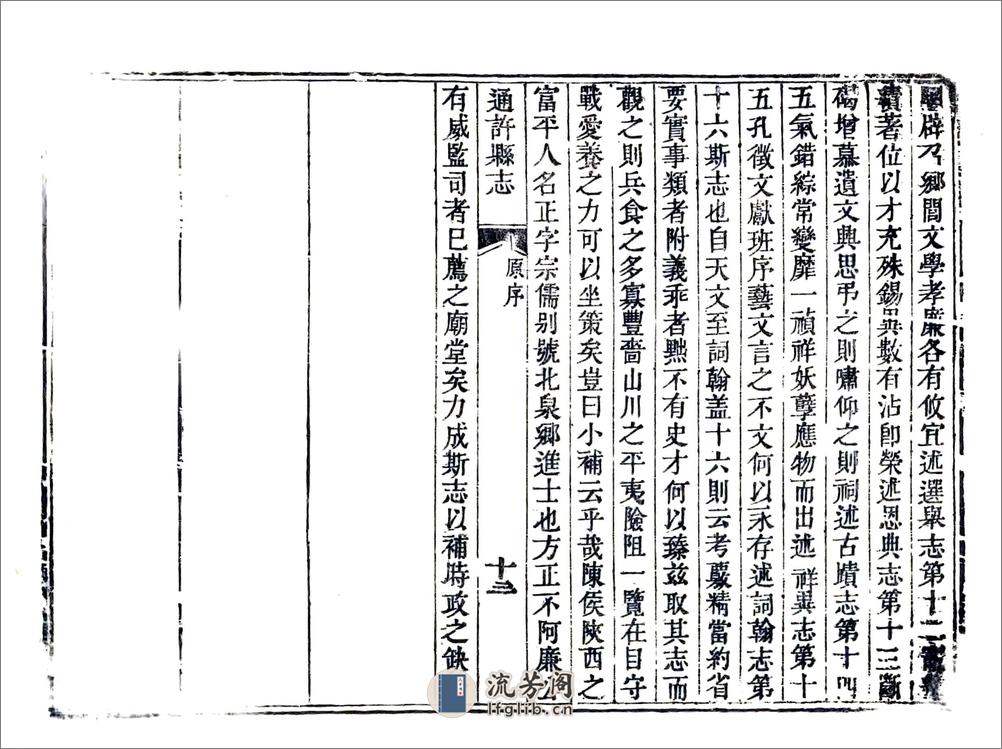 辟乃鄉閭文學孝廉各有攸宜述選舉志第十二
續著位以才充殊錫異數有沾卽榮述恩典志第十三斷
碣增慕遺文興思弔之則嘯仰之則祠述古蹟志第十四
五氣錯綜常變靡一禎祥妖孽應物而出述祥異志第十
五孔徵文獻班序藝文言之不文何以永存述詞翰志第
十六斯志也自天文至詞翰盖十六則云考覈精當約省
要實事類者附義乖者黜不有史才何以臻茲取其志而
觀之則兵食之多寡豐嗇山川之平夷險阻一覽在目守
戰愛養之力可以坐策矣豈曰小補云乎哉陳侯陝西之
富平人名正字宗儒别號北泉鄉進士也方正不阿廉
通許縣志
原序
十三
有威監司者已薦之廟堂矣力成斯志以補時政之缺
流芳阁
lfglib.cn